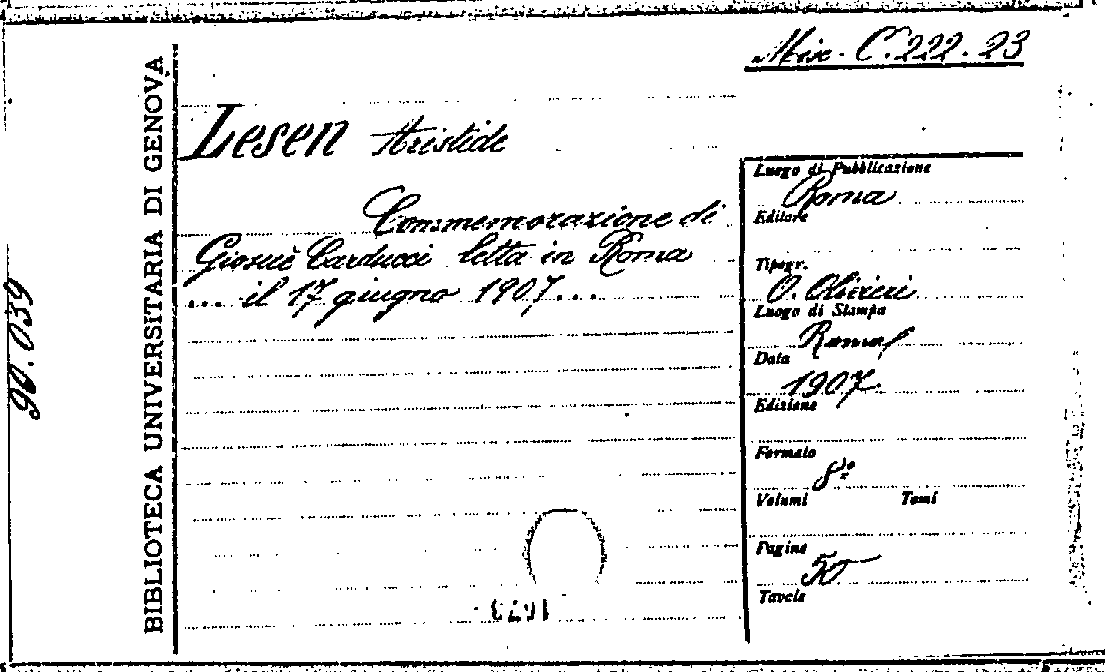 Misc. C. 222. 23
BIBLIOTECA UNIVERSITARIA DI GENOVA
90.039
Lesen Aristide
Commemorazione di
Giosuè Carducci letta in Roma
... il 17 giugno 1907...
Luogo di Pubblicazione
Roma
Editore
Tipogr.
O. Olivieri
Luogo di Stampa
Roma
Data
1907
Edizione
Formato
8º
Volumi Tomi
Pagine
50
Tavole